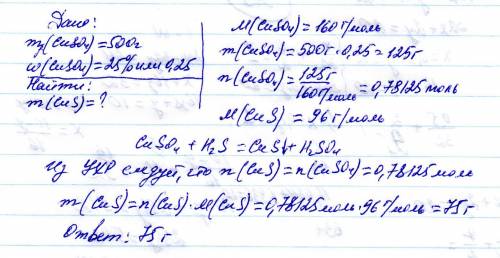 Дано:
m₁(CuSO₄)=500г
w(CuSO₄)=25% или 0,25
Найти:
m(CuS)=?
M(CuSO₄)=160 г/моль
m(CuSO₄)=500г·0,25=125г
n(CuSO₄)=125г/160г/моль=0,78125 моль
M(CuS)=96 г/моль
CuSO₄+H₂S=CuS↓+H₂SO₄
Из УХР следует, что n(CuS)=n(CuSO₄)=0,78125 моль
m(CuS)=n(CuS)·M(CuS)=0,78125моль·96г/моль=75г
Ответ: 75г